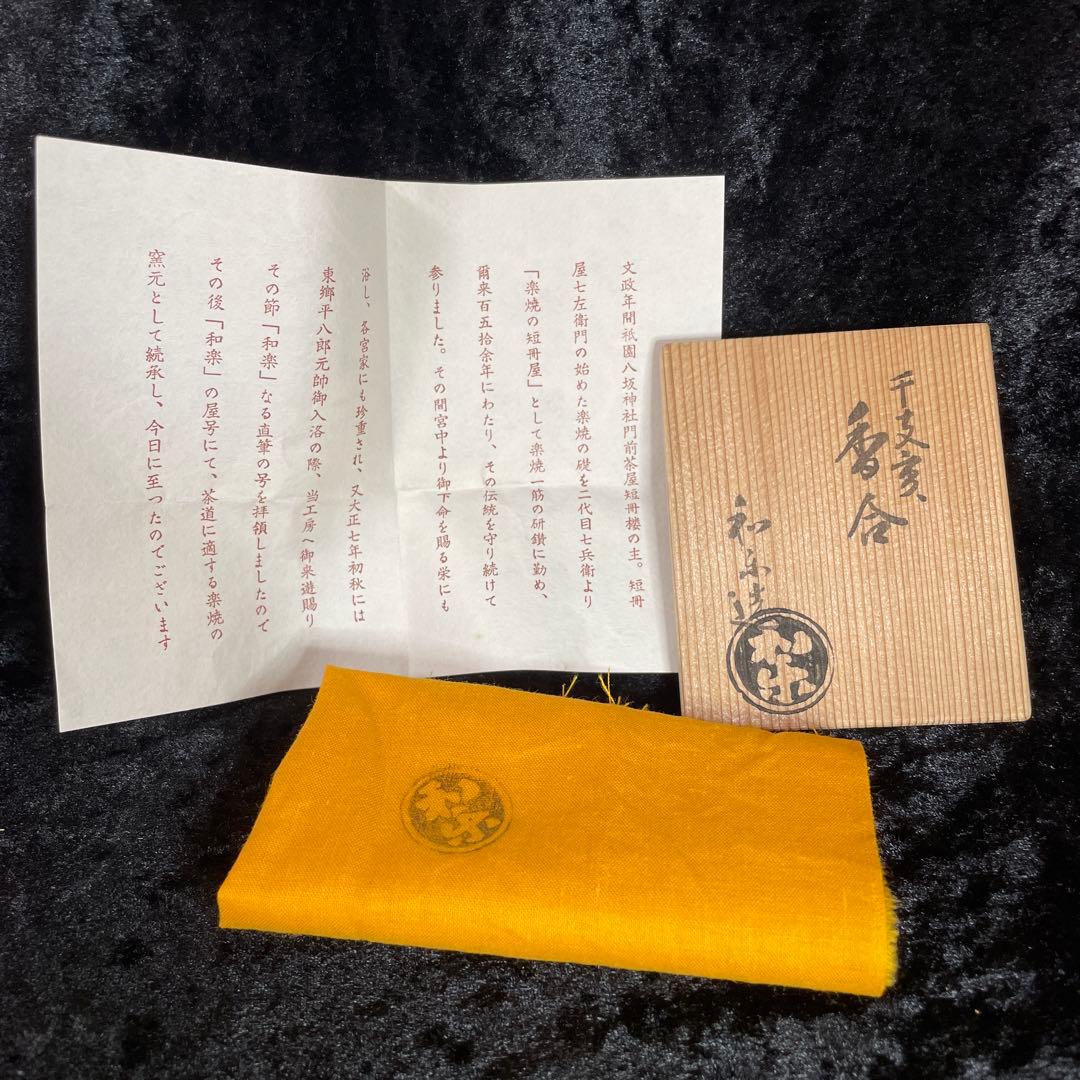 文政年間祇園八坂神社門前茶屋短冊楼の主。短冊
屋七左衛門の始めた楽焼の礎を二代目七兵衛より
「楽焼の短冊屋」として楽焼一筋の研鑽に勤め、
爾来百五拾余年にわたり、その伝統を守り続けて
参りました。その間宮中より御下命を賜る栄にも
浴し、各宮家にも珍重され、又大正七年初秋には
東郷平八郎元帥御入洛の際、当工房へ御来遊賜り
その節「和楽」なる直筆の号を拝領しましたので
その後「和楽」の屋号にて、茶道に適する楽焼の
窯元として続承し、今日に至ったのでございます
干支亥
香合
和楽造
和楽
和楽